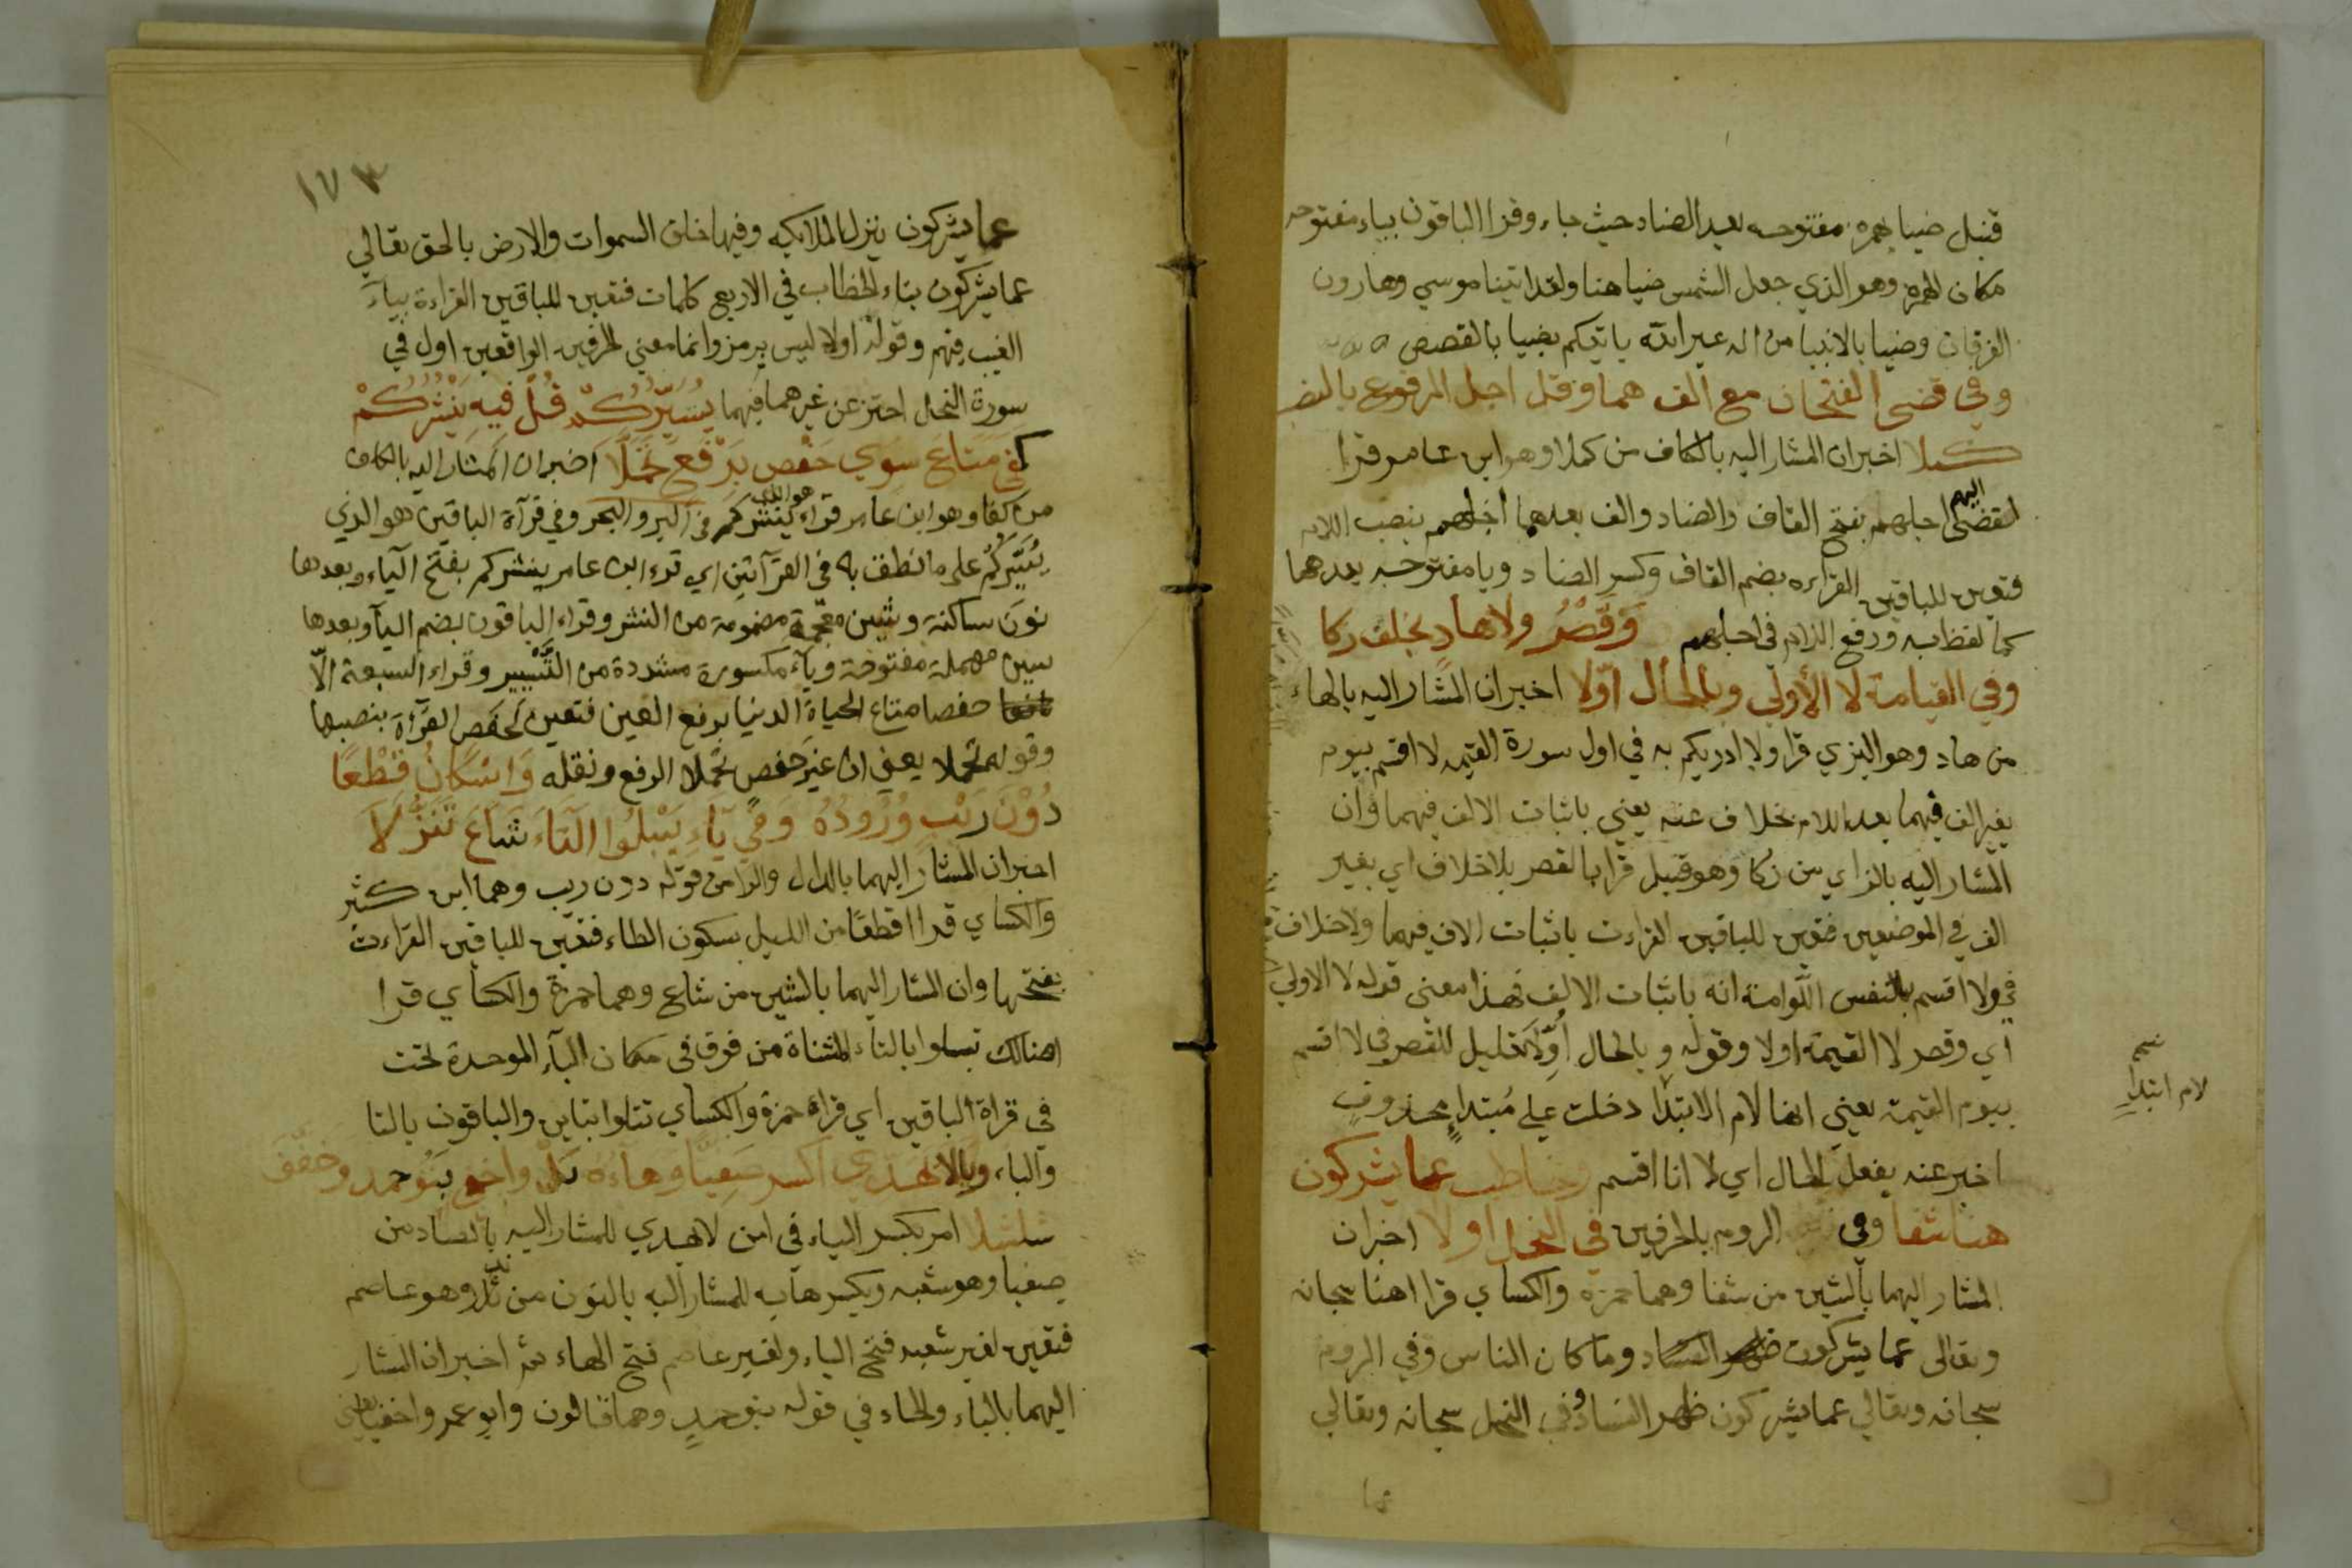 قنبل ضيا بهمزه مفتوحه بعد الضاد حيث جاء وقرا الباقون بياء مفتوحه
مكان الهمزه وهو الذي جعل الشمس ضيا هنا ولقد اتينا موسي وهارون
الفرقان وضيا بالانبيا من اله غير الله ياتيكم بضيا بالقصص
وفي قضي الفتحان مع الف هما وقل اجل المرفوع بالنصب
كملا اخبر ان المشار اليه بالكاف من كملا وهو ابن عامر قرا
لقضي اليهم اجلهم بفتح القاف والضاد والف بعدهما اجلهم بنصب اللام
فتعين للباقين القراءه بضم القاف وكسر الضاد ويا مفتوحه بعدهما
كما لفظ به ورفع اللام في اجلهم وَقَصْرُ ولا هادٍ بخلف زكا
وفي القيامة لا الأولي وبالحال اوّلا اخبر ان المشار اليه بالهاء
من هاد وهو البزي قرا ولا ادريكم به في اول سورة القيمه لا اقسم بيوم
بغير الف فيهما بعد اللام بخلاف عنه يعني باثبات الالف فيهما وان
المشار اليه بالزاي من زكا وهو قنبل قرا بالقصر بلا خلاف اي بغير
الف في الموضعين فتعين للباقين القراءت باثبات الالف فيهما ولا خلاف
في ولا اقسم بالنفس اللوامة انه باثبات الالف فهذا معني قوله لا الاولي
اي وقصر لا القيمة اولا وقوله وبالحال اُوِّلا تعليل للقصر في لا اقسم
بيوم القيمة يعني انها لام الابتدا دخلت علي مُبتداءٍ محذوفٍ
اخبر عنه بفعل الحال اي لا انا اقسم وخاطب عما يشركون
هنا شفا وفي الروم بالحرفين في النحل اولا اخبر ان
المشار اليهما بالشين من شفا وهما حمزه والكساي قرا اهنا سبحانه
وتعالي عما يشركون وما كان الناس وفي الروم
سبحانه وتعالي عما يشركون ظهر الفساد وفي النحل سبحانه وتعالي
عما
نسم
لام ابتداء
١٧٣
عما يشركون ينزل الملائكه وفيها خلق السموات والارض بالحق تعالي
عما يشركون بتاء الخطاب في الاربع كلمات فتعين للباقين القراءة بياء
الغيب فيهم وقوله اولا ليس برمز وانما معني الحرفين الواقعين اول في
سورة النحل احترز عن غيرهما فيهما يُسَيِّرُكُمْ قُلْ فيهِ يَنْشُرُكُمْ
كفي مَتَاعَ سِوَي حَفْصٍ بِرَفْعٍ تَحَمَّلَا اخبر ان المشار اليه بالكاف
من كفا وهو ابن عامر قراء هو الذي يَنْشُرُكُم في البر والبحر وفي قرآة الباقين هو الذي
يُسَيِّرُكُمْ علي ما نطق به في القرآتين اي قرء ابن عامر ينشركم بفتح الياء وبعدها
نون ساكنة وشين معجمة مضمومة من النشر وقراء الباقون بضم اليآ وبعدها
سين مهملة مفتوحة وياء مكسورة مشددة من التَّسْيِير وقراء السبعة الّا
حفصا متاع الحياة الدنيا برفع العين فتعين لحفص القرآة بنصبها
وقوله تحملا يعني ان غير حفص تحملا الرفع ونقله وَاسْكَانُ قِطْعًا
دُوْنَ رَيْبٍ وُرُودُهُ وَفي بَاءِ تَبْلُوا التَّاءَ شَاعَ تَنَزُّلَا
اخبر ان المشار اليهما بالدال والرا من قوله دون ريب وهما ابن كثير
والكساي قرا اقطعًا من الليل بسكون الطاء فتعين للباقين القراءت
بفتحها وان المشار اليهما بالشين من شاع وهما حمزة والكساي قرا
اهنالك تتلوا بالتاء المثناة من فوق في مكان البآء الموحدة تحت
في قراة الباقين اي قراة حمزة والكساي تتلوا بتاين والباقون بالتا
والباء ويَا لا يَهدّي اكسر صَفِيًّا وَهَاءَهُ نَلْ واخفي بَنُو حمد وخفِّفَ
شلشلا امر بكسر الياء في امن لا يهدي للمشار اليه بالصاد من
صفيا وهو شعبه وبكسر هايه للمشار اليه بالنون من نل وهو عاصم
فتعين لغير شعبه فتح الياء ولغير عاصم فتح الهاء ثم اخبر ان المشار
اليهما بالباء والحاء في قوله بنو حمدٍ وهما قالون وابو عمر واخفيا